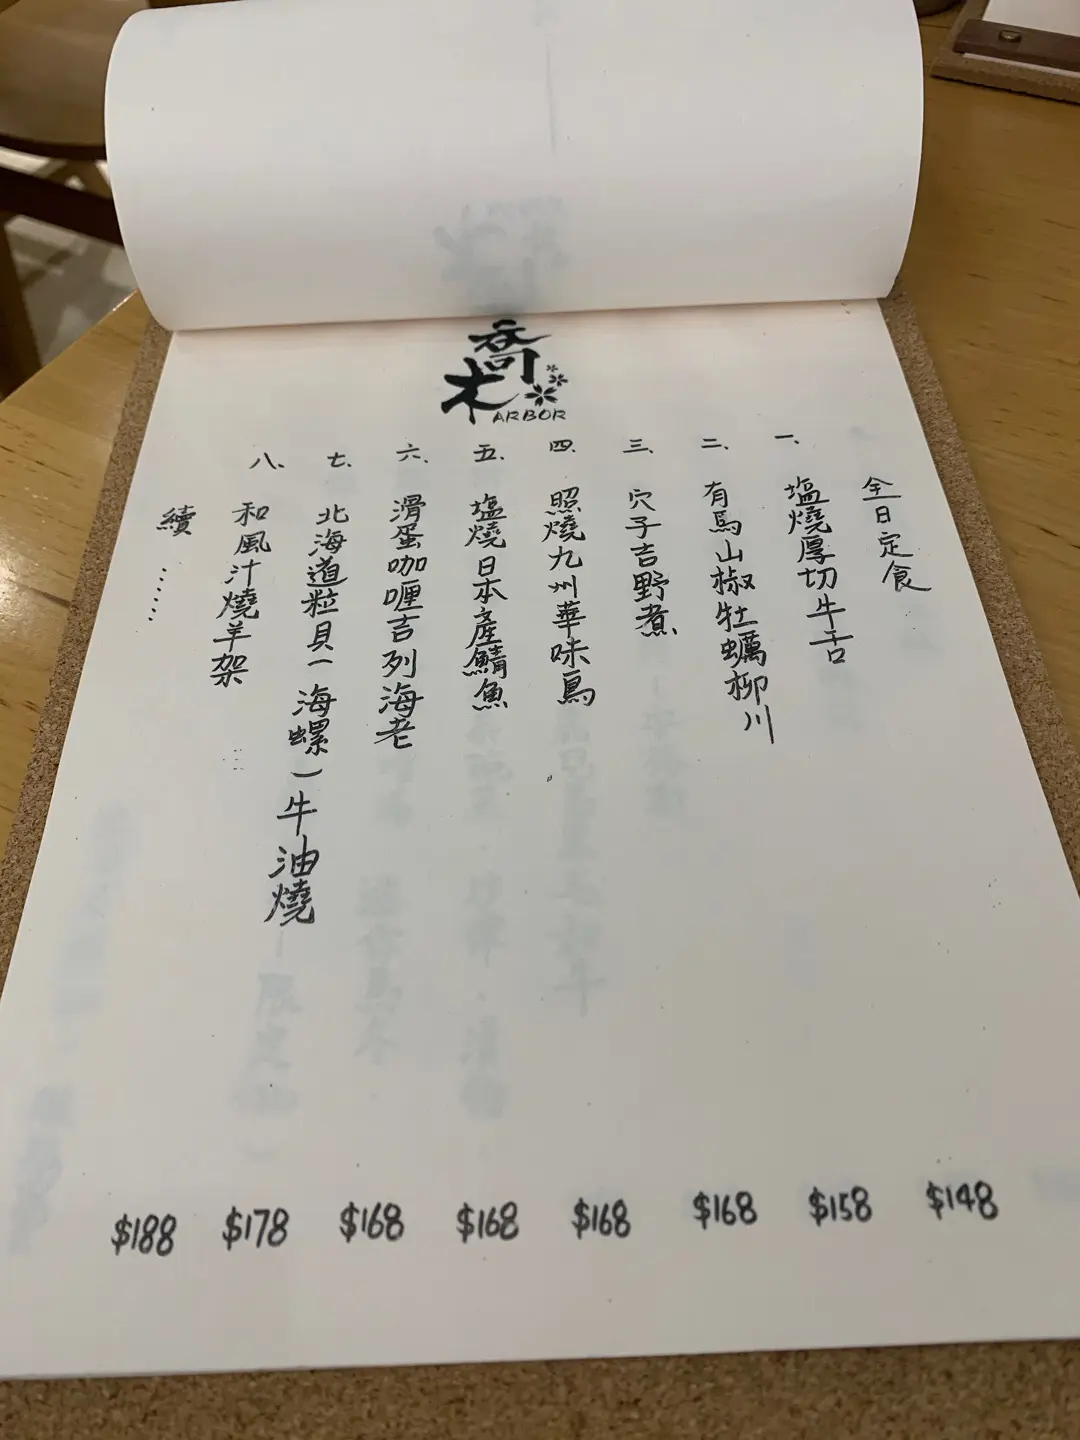 喬木
ARBOR
全日定食
一、塩燒厚切牛舌
二、有馬山椒牡蠣柳川
三、穴子吉野煮
四、照燒九州華味鳥
五、塩燒日本產鯖魚
六、滑蛋咖喱吉列海老
七、北海道粒貝(海螺)牛油燒
八、和風汁燒羊架
續……
$148
$158
$168
$168
$168
$168
$178
$188